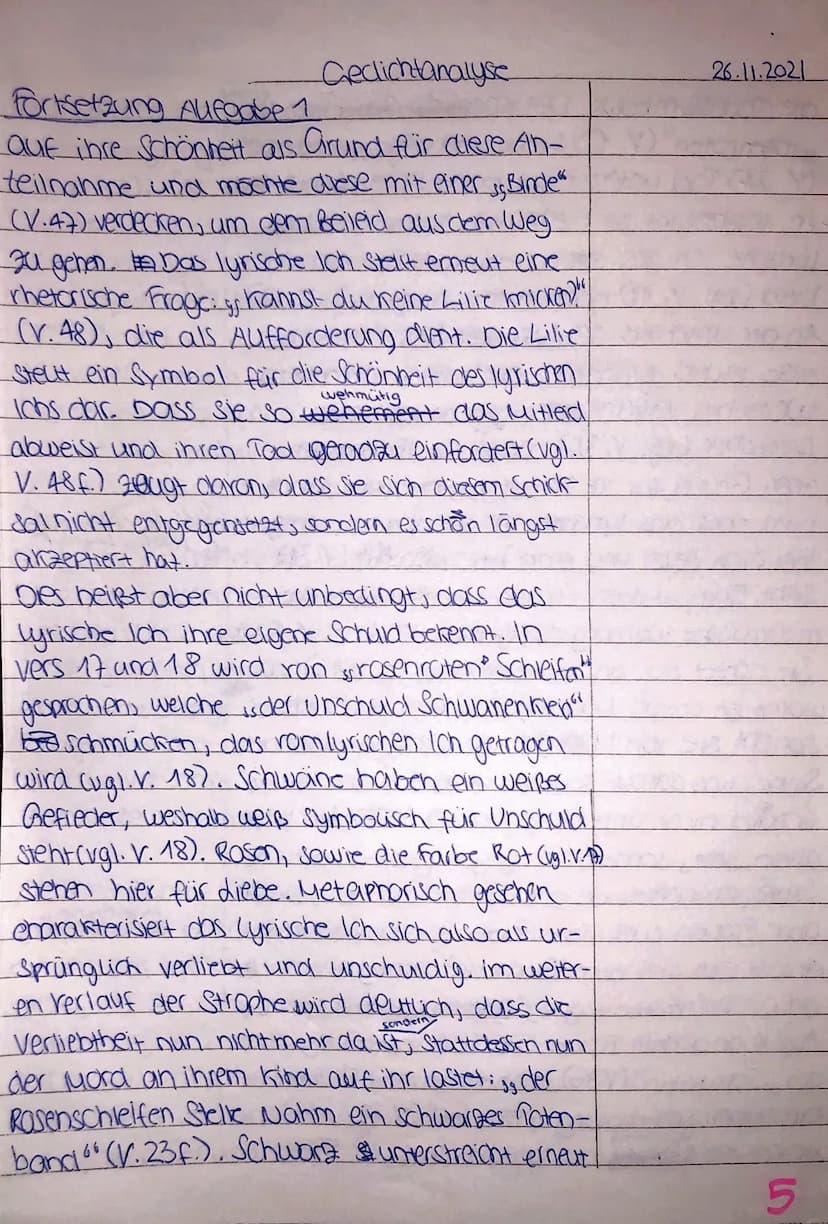 Gedichtanalyse 26.11.2021
Fortsetzung Aufgabe 1
auf ihre Schönheit als Grund für diese An-
teilnahme und möchte diese mit einer „Binde“
(V.47) verdecken, um dem Beileid aus dem Weg
zu gehen. Das lyrische Ich stellt erneut eine
rhetorische Frage: „kannst du keine Lilie knicken?“
(V.48), die als Aufforderung dient. Die Lilie
stellt ein Symbol für die Schönheit des lyrischen
wehmütig
Ichs dar. Dass sie so wehement das Mitleid
abweist und ihren Tod geradzu einfordert (vgl.
V. 48f.) zeugt davon, dass sie sich diesem Schick-
sal nicht entgegensetzt, sondern es schon längst
akzeptiert hat.
Dies heißt aber nicht unbedingt, dass das
lyrische Ich ihre eigene Schuld bekennt. In
Vers 17 und 18 wird von „rosenroten Schleifen“
gesprochen, welche „der Unschuld Schwanenkleid“
schmücken, das vom lyrischen Ich getragen
wird (vgl. V. 18). Schwäne haben ein weißes
Gefieder, weshalb weiß symbolisch für Unschuld
steht (vgl. V. 18). Rosen, sowie die Farbe Rot (vgl. V. 17)
stehen hier für Liebe. Metaphorisch gesehen
charakterisiert das lyrische Ich sich also als ur-
sprünglich verliebt und unschuldig. im weiter-
en Verlauf der Strophe wird deutlich, dass die
sondern
Verliebtheit nun nicht mehr da ist, stattdessen nun
der Mord an ihrem Kind auf ihr lastet: „der
Rosenschleifen Stelle Nahm ein schwarzes Toten-
band“ (V. 23f.). Schwarz unterstreicht erneut
5